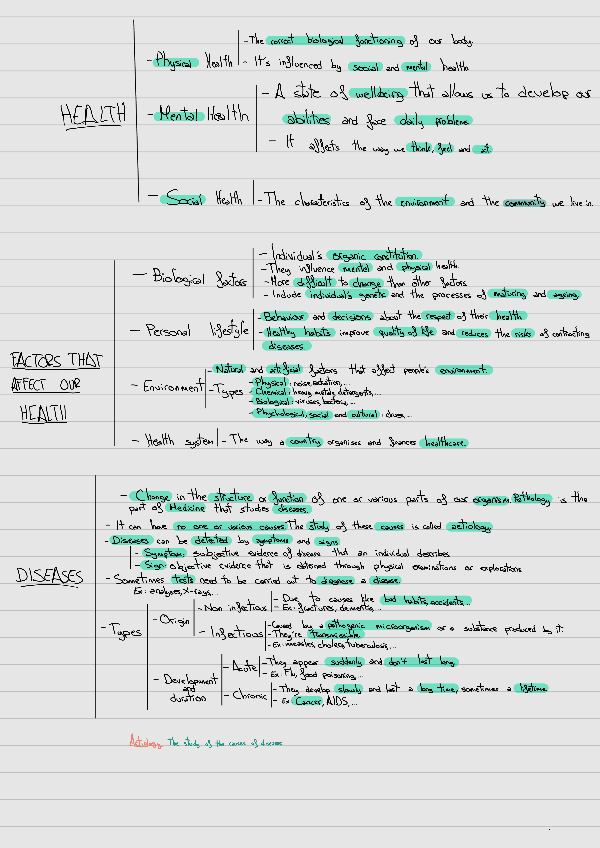 HEALTH
- Physical Health
- The correct biological functioning of our body.
- It's influenced by social and mental health
- Mental Health
- A state of wellbeing that allows us to develop our
abilities and face daily problems
- It affects the way we think, feel and act
- Social Health
- The characteristics of the environment and the community we live in.
FACTORS THAT
AFFECT OUR
HEALTH
- Biological factors
- Individual's organic constitution.
- They influence mental and physical health.
- More difficult to change than other factors
- Include individual's genetic and the processes of maturing and ageing.
- Personal lifestyle
- Behaviour and decisions about the respect of their health
- Healthy habits improve quality of life and reduces the risks of contracting
diseases
- Environment
- Natural and artificial factors that affect people's environment.
- Types
- Physical: noise, radiation,...
- Chemical: heavy metals, detergents,...
- Biological: viruses, bacteria,...
- Phychological, social and cultural: drugs,...
- Health system
- The way a country organises and finances healthcare.
DISEASES
- Change in the structure or function of one or various parts of our organism. Pathology is the
part of Medicine that studies diseases.
- It can have no one or various causes. The study of these causes is called aetiology
- Diseases can be detected by symptoms and signs
- Symptom: subjective evidence of disease that an individual describes
- Sign: objective evidence that is obtained through physical examinations or explorations
- Sometimes tests need to be carried out to diagnose a disease.
Ex: analyses, X-rays,...
- Types
- Origin
- Non infectious
- Due to causes like bad habits, accidents...
- Ex: fractures, dementia,...
- Infectious
- Caused by a pathogenic microorganism or a substance produced by it.
- They're transmissible
- Ex: measles, cholera, tuberculosis,...
- Development
and
duration
- Acute
- They appear suddenly and don't last long.
- Ex: Flu, food poisoning,...
- Chronic
- They develop slowly and last a long time, sometimes a lifetime
- Ex: Cancer, AIDS,...
Aetiology: The study of the causes of disease